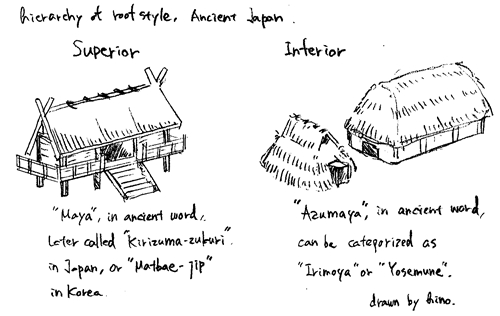 hierarchy of roof style, Ancient Japan.
Superior
"Maya", in ancient word,
later called "Kirizuma-zukuri"
in Japan, or "Matbae-jip"
in Korea
Inferior
"Azumaya", in ancient word,
can be categorized as
"Irimoya" or "Yosemune".
drawn by hino.